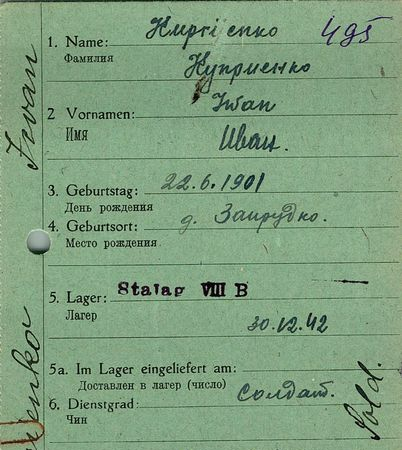 495
1. Name:
Фамилия
Куприенко
2 Vornamen:
Имя
Иван.
3. Geburtstag: 22.6.1901
День рождения
4. Geburtsort: д.
Место рождения
5. Lager: Stalag VIII B
Лагер
30.12.42
5a. Im Lager eingeliefert am:
Доставлен в лагер (число)
6. Dienstgrad: солдат.
Чин
Sold.